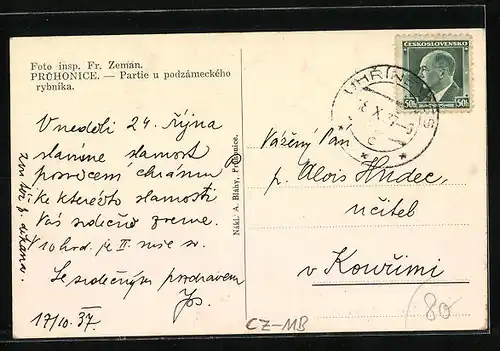 Foto insp. Fr. Zeman.
PRŮHONICE. — Partie u podzámeckého
rybníka.
V neděli 24. října
slavíme slavnost
posvěcení chrámu
Ke kteréžto slavnosti
Vás srdečně zveme.
V 10 hod. je II. mše sv.
Se srdečným pozdravem
17/10. 37.
Nákl. A. Bláhy, Průhonice.
ČESKOSLOVENSKO
50h 50h
Vážený Pan
p. Alois Hudec,
učitel
v Kouřimi
CZ-MB
80